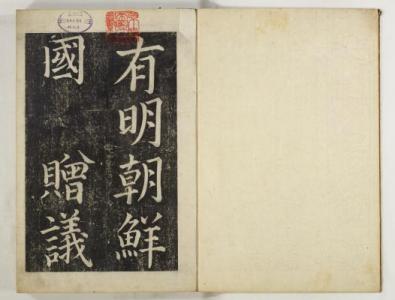 有明朝鮮
國 贈議